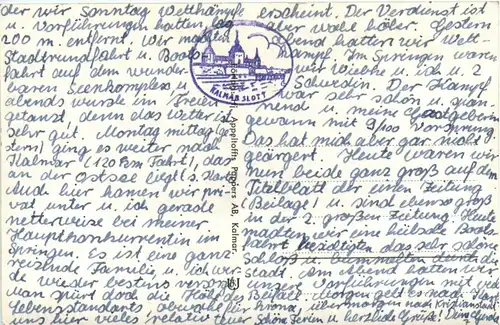 der wir Sonntag Wettkämpfe
u. Vorführungen hatten, lag
200 m. entfernt, Wir machten
Stadtrundfahrt u. Boots-
fahrt auf dem wunder-
baren Seenkomplex u.
abends wurde im Freien
getanzt, denn das Wetter ist
sehr gut. Montag mittag (ge-
stern) ging es weiter nach
Kalmar (120 Fahrt), das
an der Ostsee liegt (s. Karte
Auch hier kamen wir pri-
vat unter u. ich gerade
netterweise bei meiner
Hauptkonkurrentin im
Springen. Es ist eine ganz
reizende Familie, u. ich wer-
de wieder bestens versorgt
man spürt doch die Höhe des
Lebensstandarts obwohl für
uns hier vieles relativ teuer
erscheint. Der Verdienst ist
aber wohl höher. Gestern
Abend hatten wir Wett-
kampf. Im Springen waren
wir Wiebke u. ich u. 2
Schwedin. Der Kampf
war sehr schön u. span-
nend u. meine Gastgeberin
gewann mit Vorsprung.
Das hat mich aber gar nicht
geärgert. Heute waren wir
nun beide ganz groß auf dem
Titelblatt der einen Zeitung
(Beilage) u. sind ebenso groß
in der 2. großen Zeitung. Heute
machten wir eine hübsche Boots-
fahrt besichtigten das sehr schöne
Schloß u. bummelten durch die
Stadt. Am Abend hatten wir
unsere Vorführungen mit
Beifall. Morgen geht es nach
übermorgen nach Kristianstad
Schöne Ferien u. herzliche Grüße!
KALMAR SLOTT
Appeltoffts Pappers AB, Kalmar.